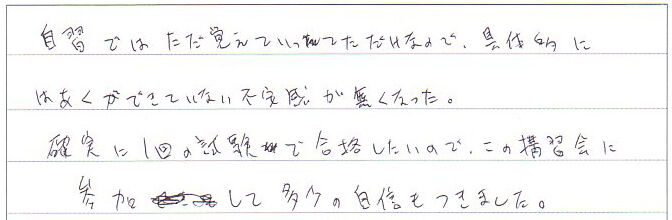 自習ではただ覚えていってただけなので、具体的に
はあくができていない不安感が無くなった。
確実に1回の試験で合格したいので、この講習会に
参加して多少の自信もつきました。